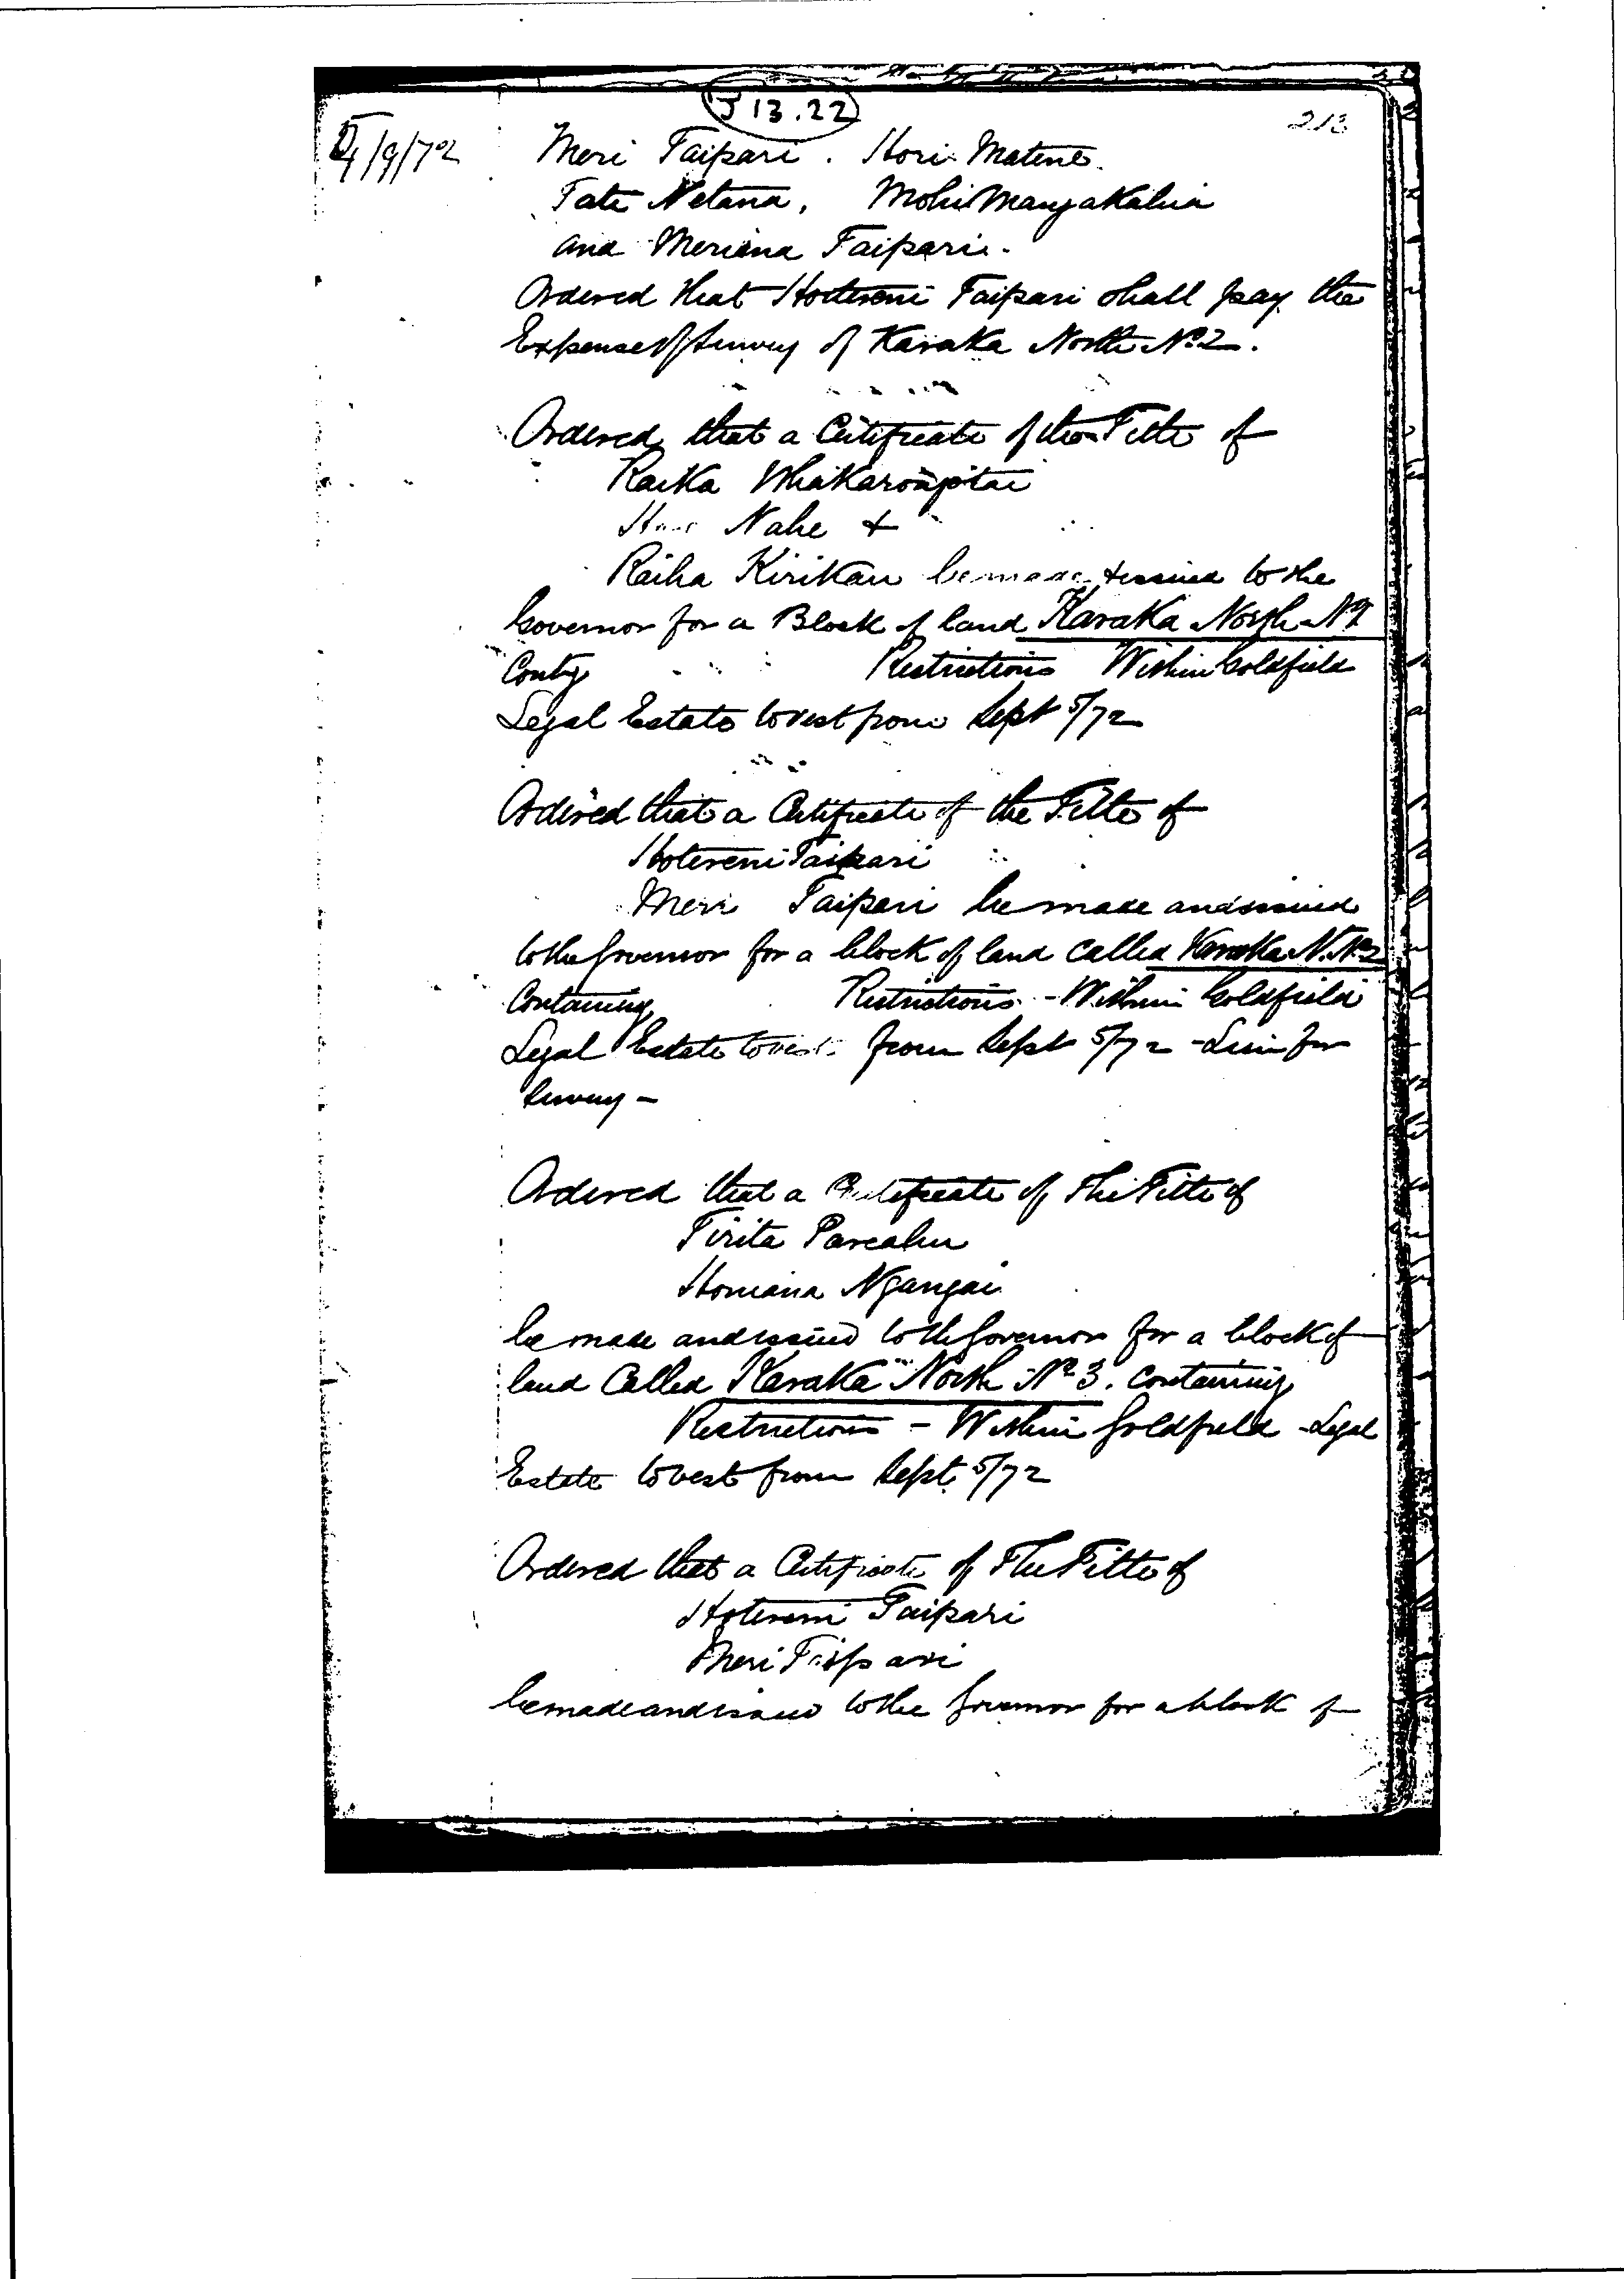 J 13.22
213
4/9/72
Meri Taipari. Hori Matene.
Tate Netana, Mohi Mangakahia
and Meriana Taipari.
Ordered that Hotereni Taipari shall pay the
Expense of Survey of Karaka North No 2.
Ordered that a Certificate of the Title of
Raika Whakarongotai
Nahe +
Raiha Kirikau be made + issued to the
Governor for a Block of land Karaka North No 1
Contg Restrictions Within Goldfield
Legal Estate to vest from Sept 5/72
Ordered that a Certificate of the Title of
Hotereni Taipari
Meri Taipari be made and issued
to the Governor for a block of land called Karaka N. No 2
Containing Restrictions - Within Goldfield
Legal Estate to vest from Sept 5/72 - Lien for
Survey -
Ordered that a Certificate of the Title of
Tirita Pareahu
Homana Ngangai
be made and issued to the Governor for a block of
land Called Karaka North No 3. Containing
Restrictions - Within Goldfield - Legal
Estate to vest from Sept 5/72
Ordered that a Certificate of the Title of
Hotereni Taipari
Meri Taipari
be made and issued to the Governor for a block of